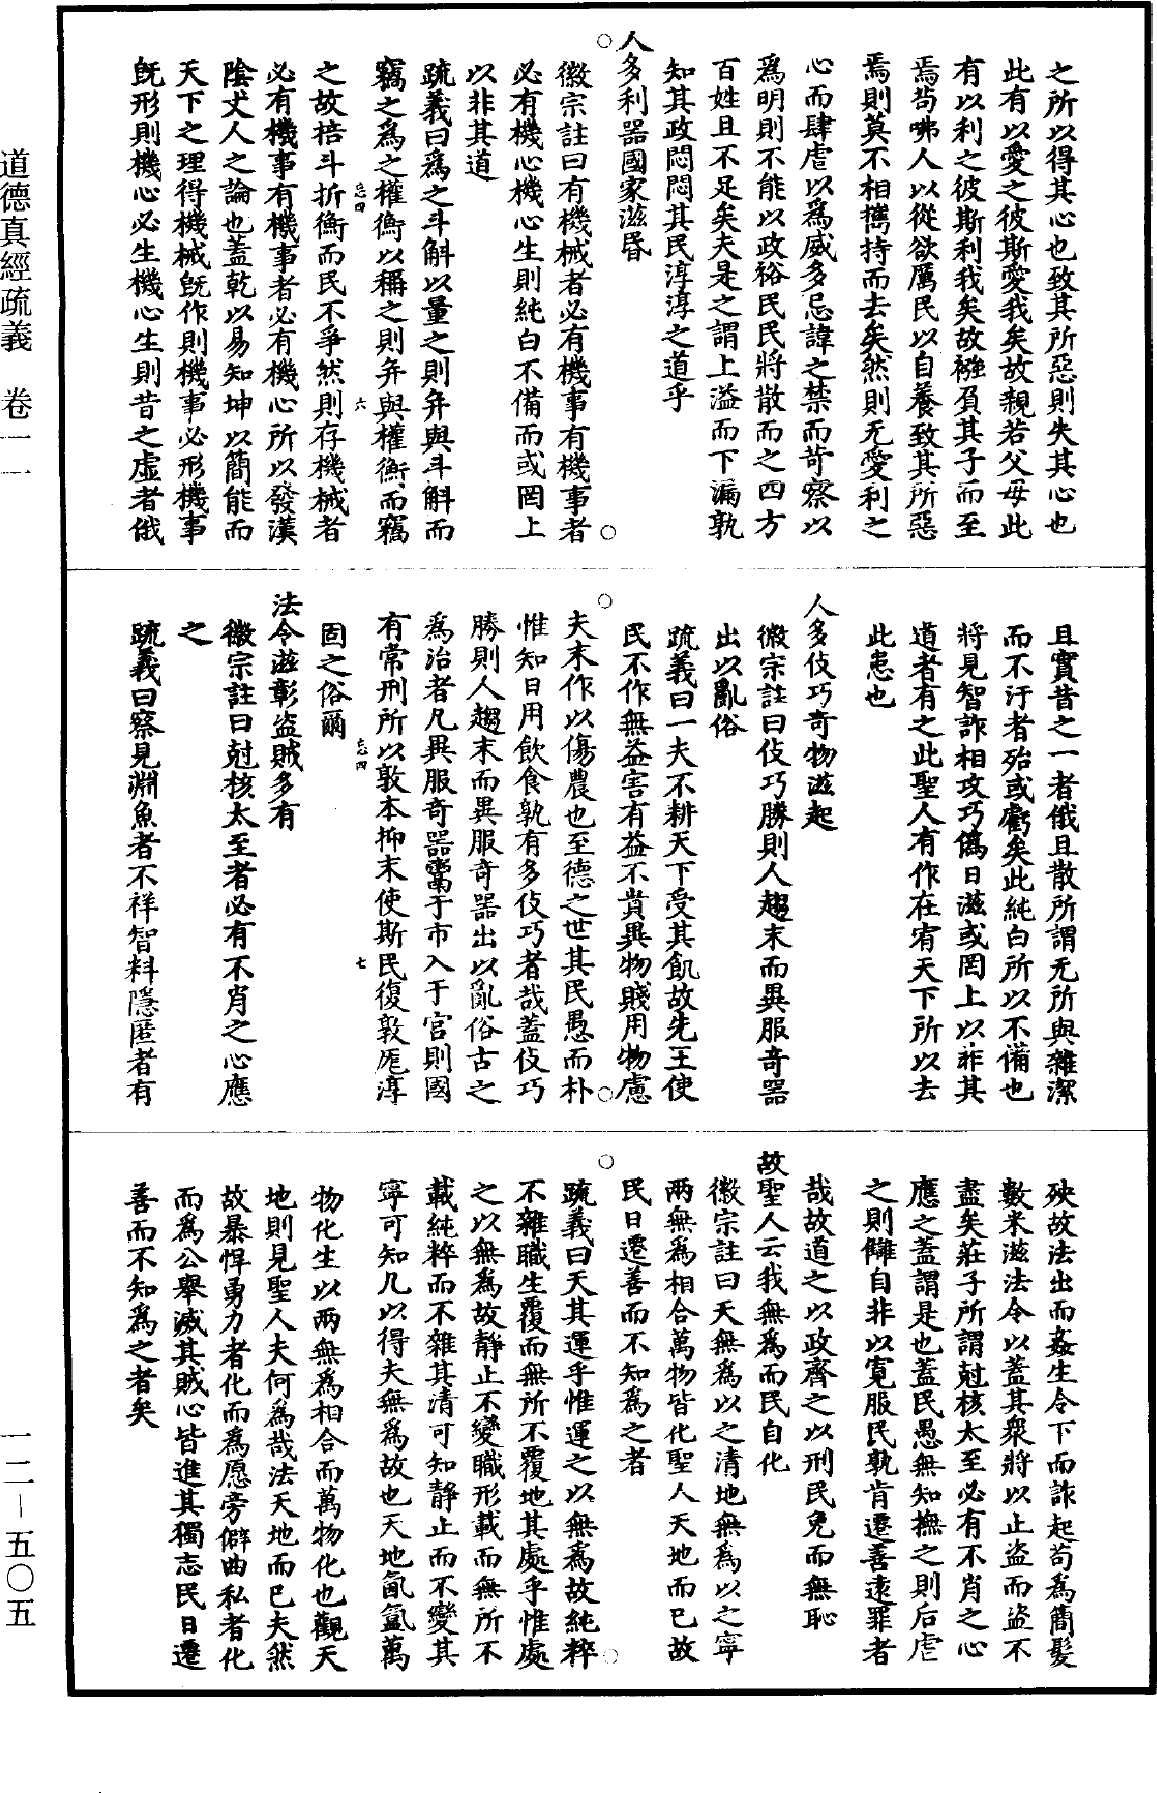 之所以得其心也致其所惡則失其心也
此有以愛之彼斯愛我矣故親若父母此
有以利之彼斯利我矣故襁負其子而至
焉茍咈人以從欲厲民以自養致其所惡
焉則莫不相攜持而去矣然則无愛利之
心而肆虐以為威多忌諱之禁而苛察以
為明則不能以政裕民民將散而之四方
百姓且不足矣夫是之謂上溢而下漏孰
知其政悶悶其民淳淳之道乎
人多利器國家滋昏
徽宗註曰有機械者必有機事有機事者
必有機心機心生則純白不備而或罔上
以非其道
疏義曰為之斗斛以量之則并與斗斛而
竊之為之權衡以稱之則并與權衡而竊
忘四 六
之故掊斗折衡而民不爭然則存機械者
必有機事有機事者必有機心所以發漢
陰丈人之論也蓋乾以易知坤以簡能而
天下之理得機械既作則機事必形機事
既形則機心必生機心生則昔之虛者俄
且實昔之一者俄且散所謂无所與雜潔
而不汙者殆或虧矣此純白所以不備也
將見智詐相攻巧偽日滋或罔上以非其
道者有之此聖人有作在宥天下所以去
此患也
人多伎巧奇物滋起
徽宗註曰伎巧勝則人趨末而異服奇器
出以亂俗
疏義曰一夫不耕天下受其飢故先王使
民不作無益害有益不貴異物賤用物慮
夫末作以傷農也至德之世其民愚而朴
惟知日用飲食孰有多伎巧者哉蓋伎巧
勝則人趨末而異服奇器出以亂俗古之
為治者凡異服奇器鬻于市入于宮則國
有常刑所以敦本抑末使斯民復敦厖淳
忘四 七
固之俗爾
法令滋彰盜賊多有
徽宗註曰尅核太至者必有不肖之心應
之
疏義曰察見淵魚者不祥智料隱匿者有
殃故法出而姦生令下而詐起苟為簡髮
數米滋法令以蓋其眾將以止盜而盜不
盡矣莊子所謂尅核太至必有不肖之心
應之蓋謂是也蓋民愚無知撫之則后虐
之則讎自非以寬服民孰肯遷善遠罪者
哉故道之以政齊之以刑民免而無恥
故聖人云我無為而民自化
徽宗註曰天無為以之清地無為以之寧
兩無為相合萬物皆化聖人天地而已故
民日遷善而不知為之者
疏義曰天其運乎惟運之以無為故純粹
不雜職生覆而無所不覆地其處乎惟處
之以無為故靜止不變職形載而無所不
載純粹而不雜其清可知靜止而不變其
寧可知凡以得夫無為故也天地氤氳萬
物化生以兩無為相合而萬物化也觀天
地則見聖人夫何為哉法天地而已夫然
故暴悍勇力者化而為愿旁僻曲私者化
而為公舉滅其賊心皆進其獨志民日遷
善而不知為之者矣
道德真經疏義 卷一一
一二－五〇五